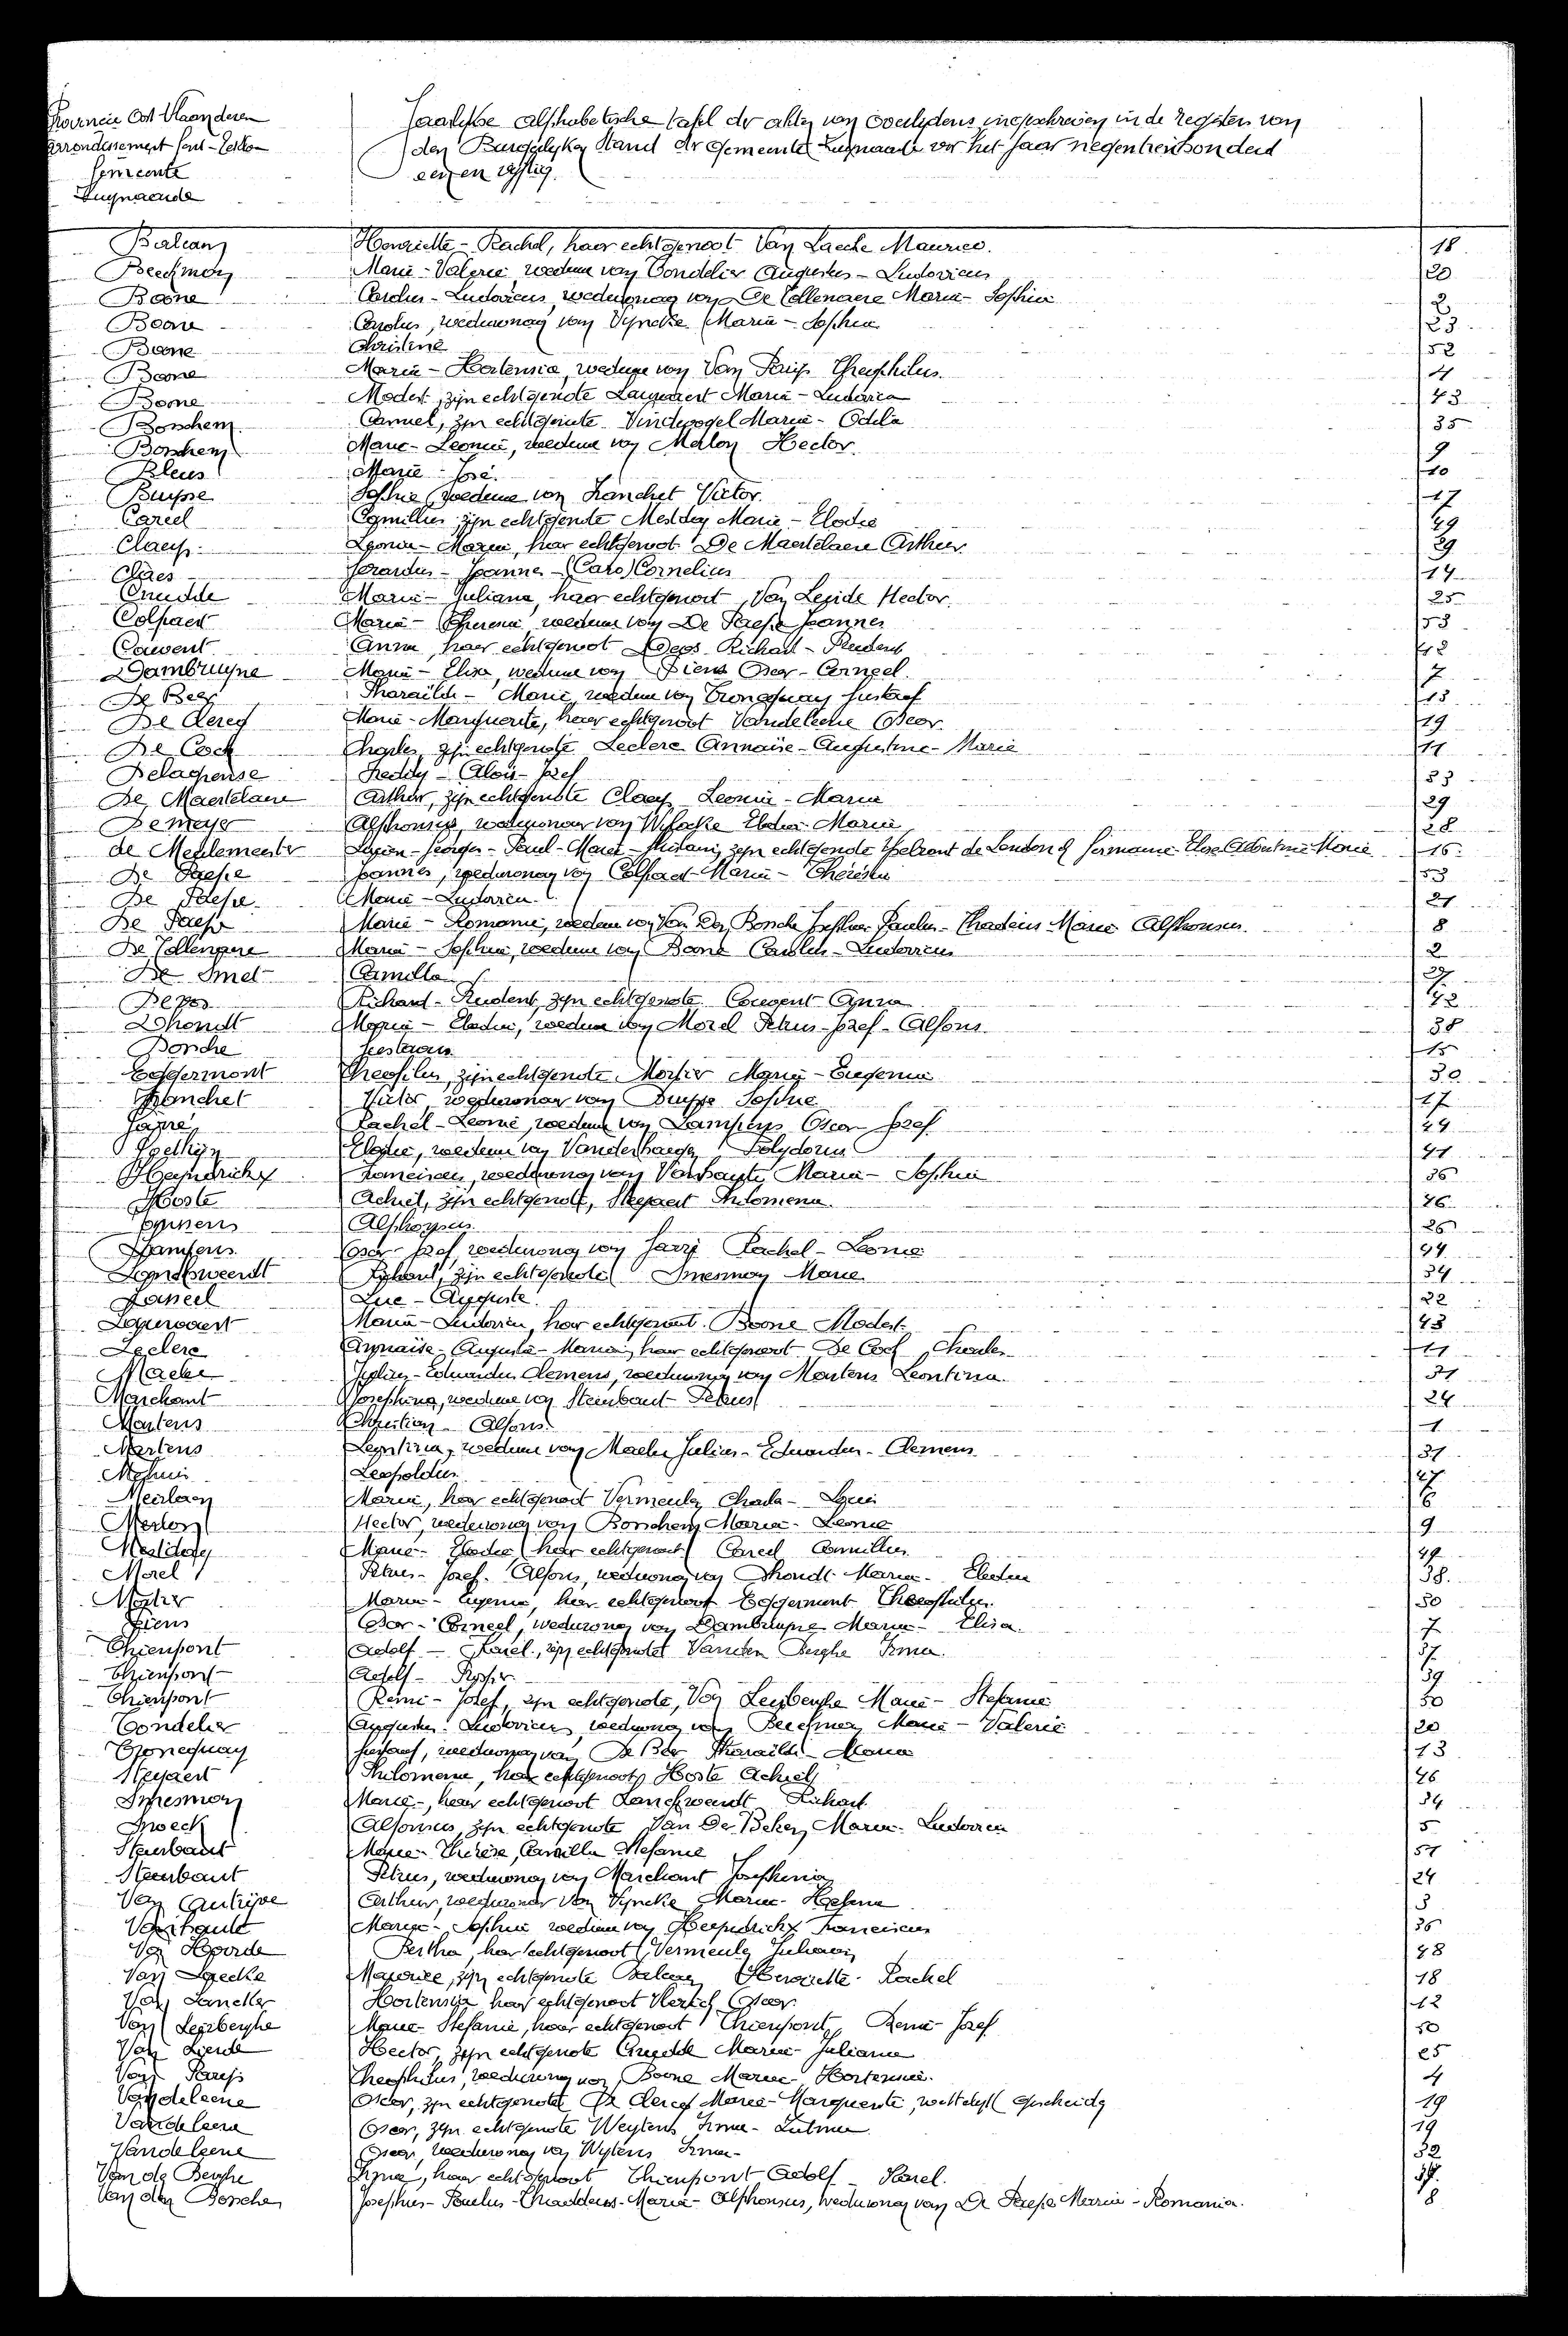 Provincie Oost Vlaanderen
Arrondissement Gent-Eekloo
Gemeente
Luynaarde
Jaarlijkse alphabetische tafel der akten van overlijdens ingeschreven in de registers van
den Burgerlyken Stand der Gemeente voor het jaar negentienhonderd
een en vijftig.
Henriette - Rachel, haar echtgenoot Van Laecke Maurice. 18
Beeckman Marie - Valerie weduwe van Tondelier Augustus - Ludovicus 20
Boone Carolus - Ludovicus, weduwnaar van De Tollenaere Maria - Sophia 2
Boone Carolus, weduwnaar van Vyncke Maria - Sophia 23
Boone Christine 52
Boone Maria - Hortensia, weduwe van Van Parijs Theophilus. 4
Boone Modest, zijn echtgenote Laquaert Maria - Ludovica 43
Borschem Camiel, zijn echtgenote Vindevogel Maria - Odila 35
Borschem Marie - Leonie, weduwe van Malon Hector. 9
Bleus Marie - José. 10
Buysse Sophie, weduwe van Hanchet Victor. 17
Careel Camillus zijn echtgenote Mestdag Marie - Elodie 49
Claeys Leonia - Maria, haar echtgenoot De Maertelaere Arthur. 29
Claes Gerardus - Joannes - (Caro) Cornelius 14
Cnudde Maria - Juliana, haar echtgenoot, Van Lierde Hector. 25
Colpaert Maria - Theresia, weduwe van De Paepe Joannes 53
Couvent Anna, haar echtgenoot Devos Richard - Prudent 42
Dambruyne Maria - Elisa, weduwe van Piens Oscar - Corneel. 7
De Beer Tharailde - Marie, weduwe van Tronequay Gustaaf 13
De Clercq Marie - Marguerite, haar echtgenoot Vandeleene Oscar. 19
De Cock Charles, zijn echtgenote Leclere Annaise - Augustine - Marie 11
Delagrense Freddy - Aloïs - Jozef 33
De Maertelaere Arthur, zijn echtgenote Claeys Leonia - Maria 29
De Meyer Alphonsus, weduwnaar van Elodie Maria 28
de Meulemeester Lucien - Georges - Paul - Marie zijn echtgenote 16
De Paepe Joannes, weduwnaar van Colpaert Maria - Theresia 53
De Paepe Maria - Ludovica. 21
De Paepe Maria - Romania, weduwe van Van Den Bossche Josephus - Paulus - Thadeus - Maria Alphonsus. 8
De Tollenaere Maria - Sophia, weduwe van Boone Carolus - Ludovicus 2
De Smet Camilla
Devos Richard - Prudent, zijn echtgenote Couvent Anna 42
Dhondt Maria - Elodia, weduwe van Morel Petrus - Jozef - Alfons. 38
Dossche 15
Eggermont Theofilus, zijn echtgenote Mortier Maria - Eugenia 30
Hanchet Victor, weduwnaar van Buysse Sophie 17
Rachel - Leonie, weduwe van Lampens Oscar Jozef 44
Elodie, weduwe van Vanderhaegen Polydorus 41
Heyndrickx Franciscus, weduwnaar van Vanhaute Maria - Sophia 36
Hoste Achiel, zijn echtgenote, Steyaert Philomena. 46
Alphonsus 26
Lampens Oscar Jozef, weduwnaar van Rachel - Leonie 44
Landsweerdt Richard, zijn echtgenote Smesman Marie 34
Luc - Auguste. 22
Laquaert Maria - Ludovica, haar echtgenoot Boone Modest. 43
Leclere Annaise - Augusta - Maria, haar echtgenoot De Cock Charles 11
Maelu Julius - Eduardus Clemens, weduwnaar van Martens Leontina. 31
Marchant Josephina, weduwe van Steenbaut Petrus 24
Martens Christian - Alfons. 1
Martens Leontina, weduwe van Maelu Julius - Eduardus - Clemens 31
Leopoldus 27
Meirlaen Maria, haar echtgenoot Vermeulen Charles - Louis 6
Merlon Hector, weduwnaar van Borschem Maria - Leonie 9
Mestdag Marie - Elodie haar echtgenoot Careel Camillus 49
Morel Petrus - Jozef - Alfons, weduwnaar van Dhondt Maria - Elodia 38
Mortier Maria - Eugenia, haar echtgenoot Eggermont Theophilus. 30
Piens Oscar - Corneel, weduwnaar van Dambruyne Maria - Elisa. 7
Thienpont Adolf - Karel, zijn echtgenote Vanden Berghe Irma. 37
Thienpont Adolf - 39
Thienpont Remi - Jozef, zijn echtgenote, Van Leirberghe Marie - Stefanie 50
Tondelier Augustus Ludovicus, weduwnaar van Beeckman Marie - Valerie 20
Tronequay Gustaaf, weduwnaar van De Beer Tharailde - Maria 13
Steyaert Philomena, haar echtgenoot Hoste Achiel 46
Smesman Marie -, haar echtgenoot Landsweerdt Richard. 34
Snoeck Alfonsus, zijn echtgenote Van De Maria - Ludovica 5
Steenbaut Marie - Thérèse, Camilla Stefanie 51
Steenbaut Petrus, weduwnaar van Marchant Josephina 24
Van Arthur, weduwnaar van Vyncke Maria - 3
Vanhaute Maria - Sophia weduwe van Heyndrickx Franciscus 36
Van Hoorde Bertha, haar echtgenoot Vermeulen 48
Van Laecke Maurice, zijn echtgenote Henriette - Rachel 18
Van Lancker Hortensia haar echtgenoot Oscar. 12
Van Leirberghe Marie - Stefanie, haar echtgenoot Thienpont Remi - Jozef 50
Van Lierde Hector, zijn echtgenote Cnudde Maria - Juliana 25
Van Parijs Theophilus, weduwnaar van, Boone Maria - Hortensia. 4
Vandeleene Oscar, zijn echtgenote De Clercq Marie - Marguerite, wettelijk gescheiden 19
Vandeleene Oscar, zijn echtgenote Weytens Irma - 19
Vandeleene Oscar, weduwnaar van Wytens Irma - 32
Van de Berghe Irma, haar echtgenoot Thienpont Adolf - Karel. 37
Van den Bossche Josephus - Paulus - Thaddeus - Maria - Alphonsus, weduwnaar van De Paepe Maria - Romania. 8